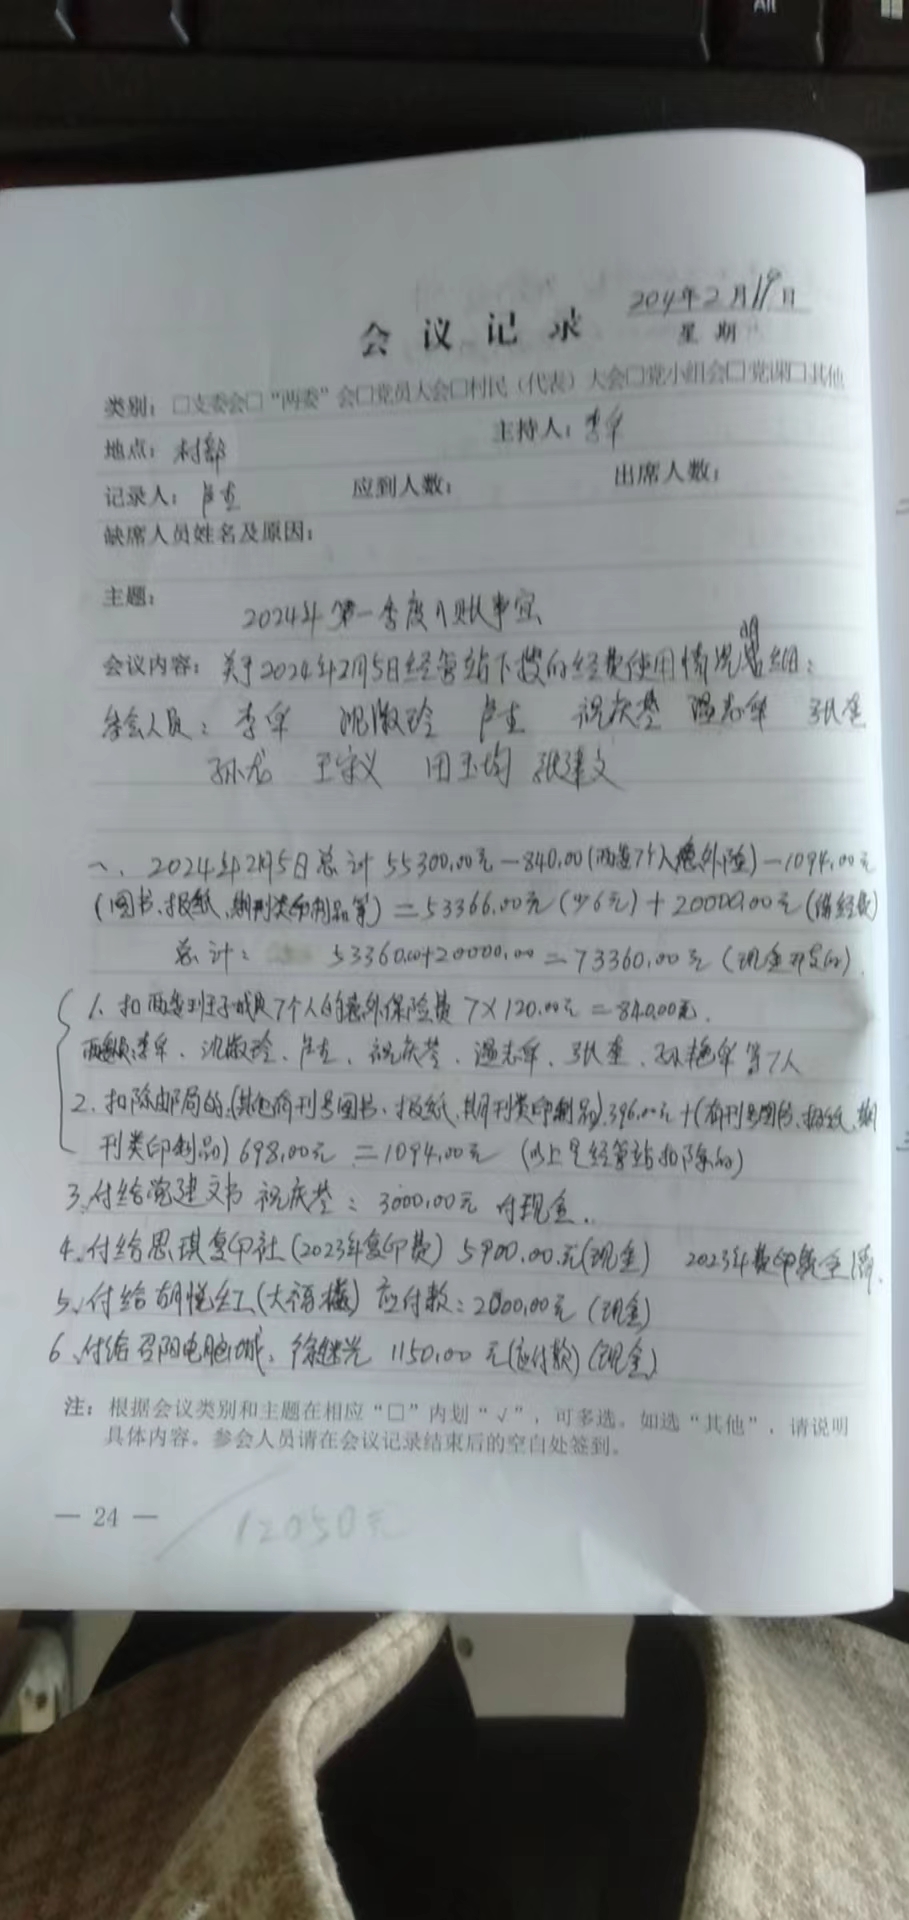 Alt
2024年2月19日
会议记录
星期
类别：□支委会□“两委”会□党员大会□村民（代表）大会□党小组会□党课□其他
地点：村部 主持人：李军
记录人：卢吉 应到人数： 出席人数：
缺席人员姓名及原因：
主题：
2024年第一季度入账事宜
会议内容：关于2024年2月5日经管站下拨的经费使用情况明细：
参会人员：李军 沈淑玲 卢吉 祝庆芬 温志军 张奎
孙龙 王守义 田玉均 张建文
一、2024年2月5日总计55300.00元－840.00（两委7个人意外险）－1094.00元
（图书、报纸、期刊类印制品等）＝53366.00元（少6元）＋20000.00元（经费）
总计： 53360.00+20000.00＝73360.00元（现金开支的）.
1、扣两委班子成员7个人的意外保险费 7×120.00元＝840.00元.
两委成员:李军、沈淑玲、卢吉、祝庆芬、温志军、张奎、孙艳军等7人
2、扣除邮局的,(其他有刊号图书、报纸、期刊类印制品),396.00元＋(有刊号图书、报纸、期
刊类印制品）698.00元＝1094.00元（以上是经管站扣除的）
3、付给党建文书 祝庆芬：3000.00元 付现金.
4、付给思琪复印社（2023年复印费）5900.00元(现金) 2023年费印账全清.
5、付给胡悦红(大福楼) 应付款：2000.00元（现金）
6、付给召阳电脑城、徐继兴 1150.00元(应付款)(现金)
注：根据会议类别和主题在相应“□”内划“√”，可多选。如选“其他”，请说明
具体内容。参会人员请在会议记录结束后的空白处签到。
— 24 —
12050元